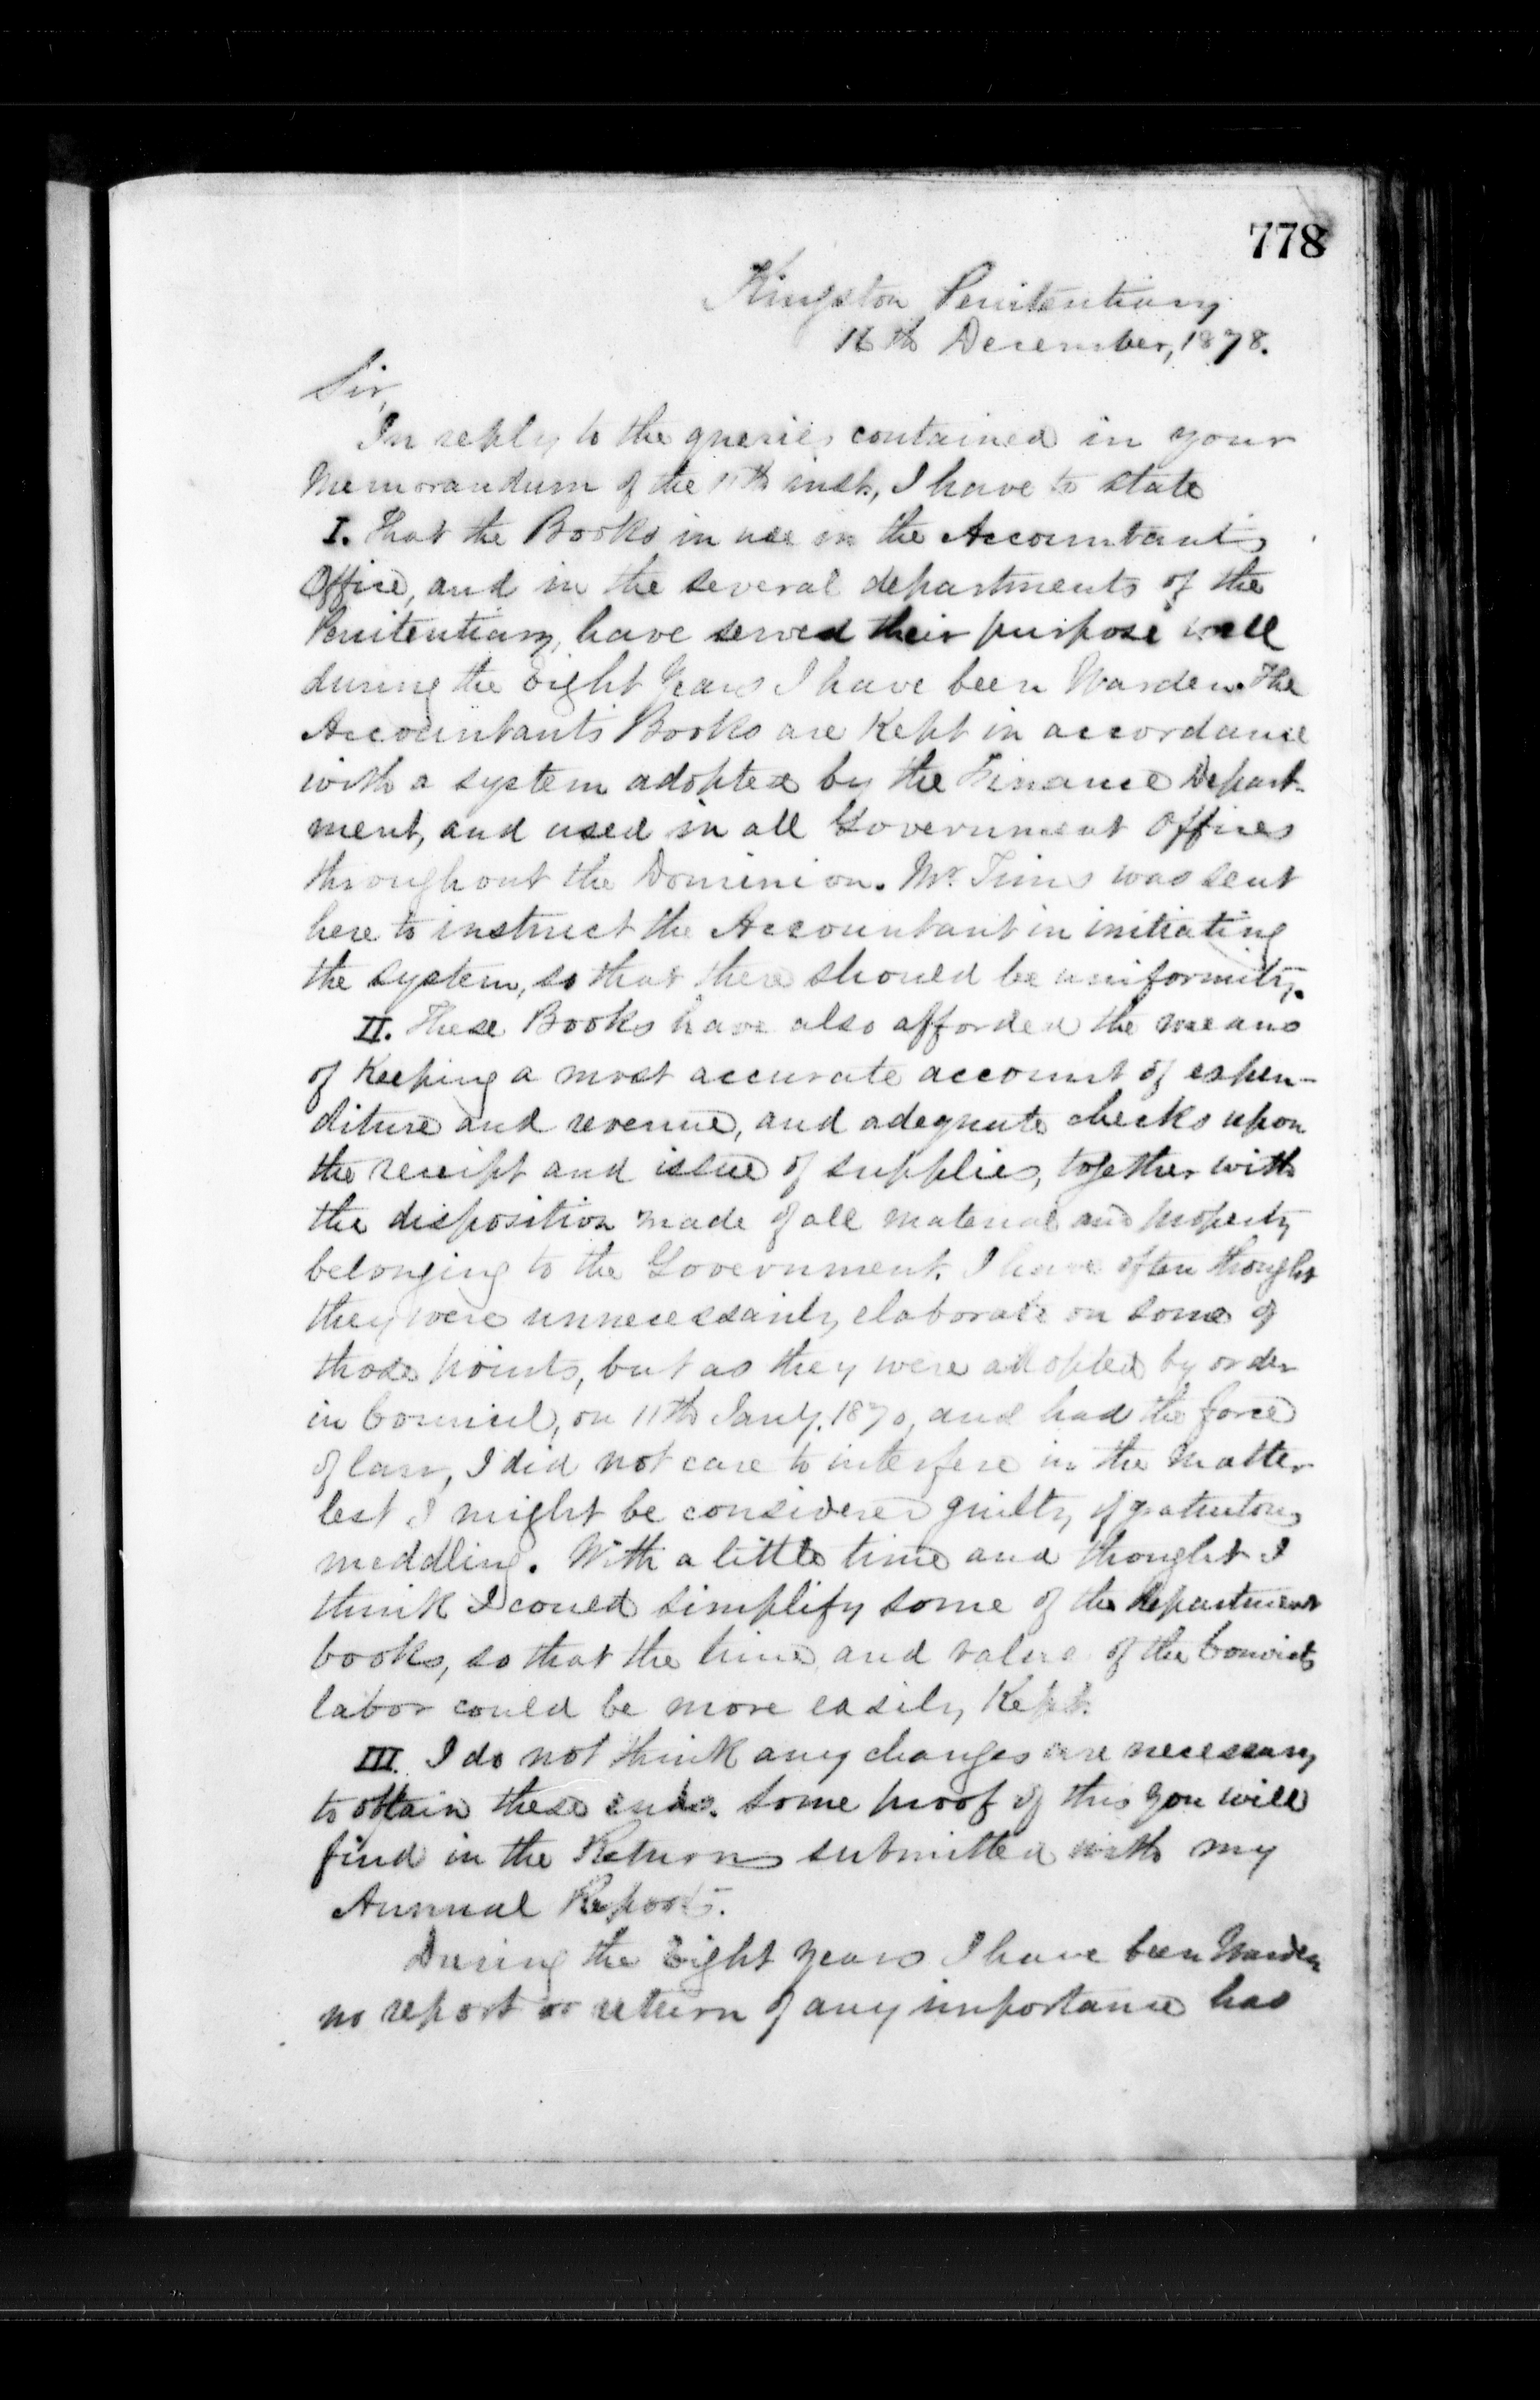 778
Kingston Penitentiary
16th December, 1878.
Sir,
In reply to the queries contained in your
Memorandum of the 11th inst, I have to state
I. That the Books in use in the Accountant's
Office, and in the several departments of the
Penitentiary, have served their purpose well
during the Eight Years I have been Warden. The
Accountant's Books are Kept in accordance
with a system adopted by the Finance Depart-
ment, and used in all Government Offices
throughout the Dominion. Mr. Tims was sent
here to instruct the Accountant in initiating
the system, so that there should be uniformity.
II. These Books have also afforded the means
of Keeping a most accurate account of expen-
diture and revenue, and adequate checks upon
the receipt and issue of supplies, together with
the disposition made of all material and property
belonging to the Government. I have often thought
they were unnecessarily elaborate on some of
those points, but as they were adopted by order
in Council, on 11th Jany. 1870, and had the force
of law, I did not care to interfere in the Matter
lest I might be considered guilty of gratuitous
meddling. With a little time and thought I
think I could simplify some of the department
books, so that the time and value of the Convict
labor could be more easily Kept.
III. I do not think any changes are necessary
to obtain these ends. Some proof of this you will
find in the Returns submitted with my
Annual Report.
During the Eight years I have been Warden
no report or return of any importance has